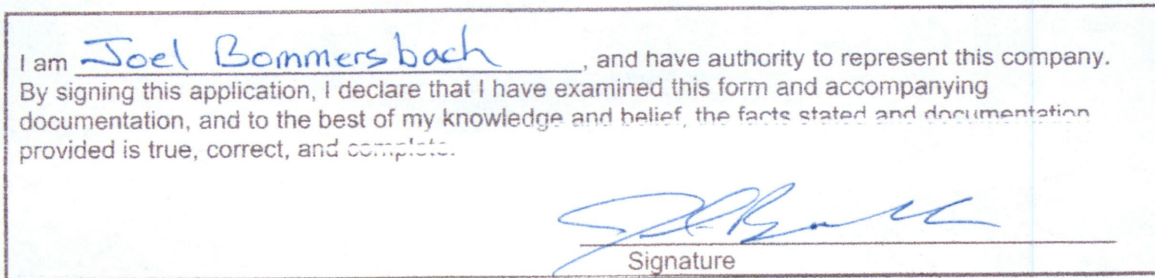 I am Joel Bommersbach, and have authority to represent this company.
By signing this application, I declare that I have examined this form and accompanying
documentation, and to the best of my knowledge and belief, the facts stated and documentation
provided is true, correct, and complete.
Signature